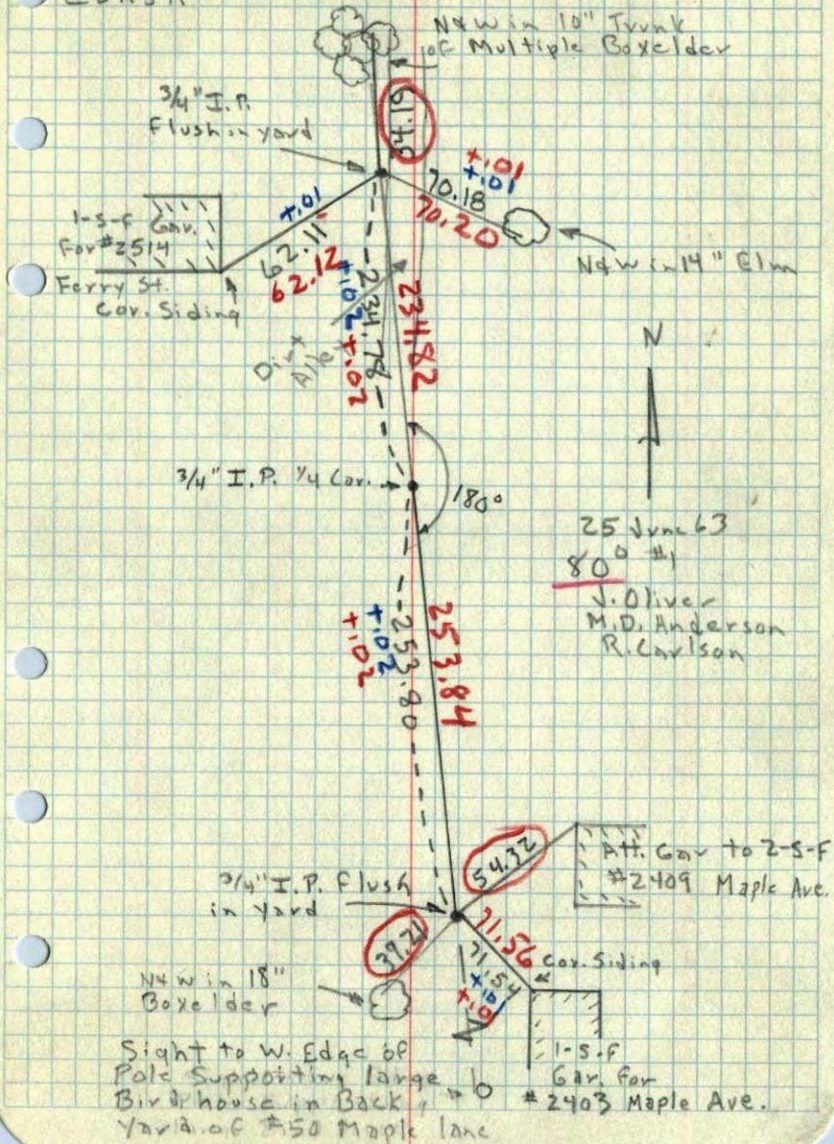 N&W in 10" Trunk
of Multiple Boxelder
3/4" I.P.
Flush in yard
54.19
+.01
+.01
70.18
70.20
N&W in 14" Elm
+.01
62.11
62.12
1-S-F Gar.
For #2514
Ferry St.
Cor. Siding
+.02
+.02
234.78
234.82
Dirt
Alley
N
3/4" I.P. 1/4 Cor.
180°
25 June 63
80° #1
J. Oliver
M.D. Anderson
R. Carlson
+.02
+.02
253.80
253.84
54.32
Att. Gar to 2-S-F
#2409 Maple Ave.
3/4" I.P. Flush
in yard
39.21
71.56
71.54
+.01
+.01
Cor. Siding
N&W in 18"
Boxelder
1-S-F
Gar. for
#2403 Maple Ave.
Sight to W. Edge of
Pole Supporting large
Birdhouse in Back
Yard of #50 Maple lane